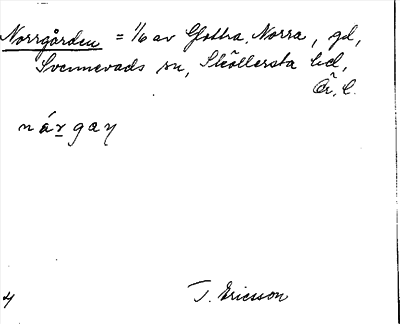 Norrgården = 1/6 av Glottra, Norra, gd,
Svennevads sn, Sköllersta hd,
Ör. l.
nárgaɲ
4
T. Ericsson